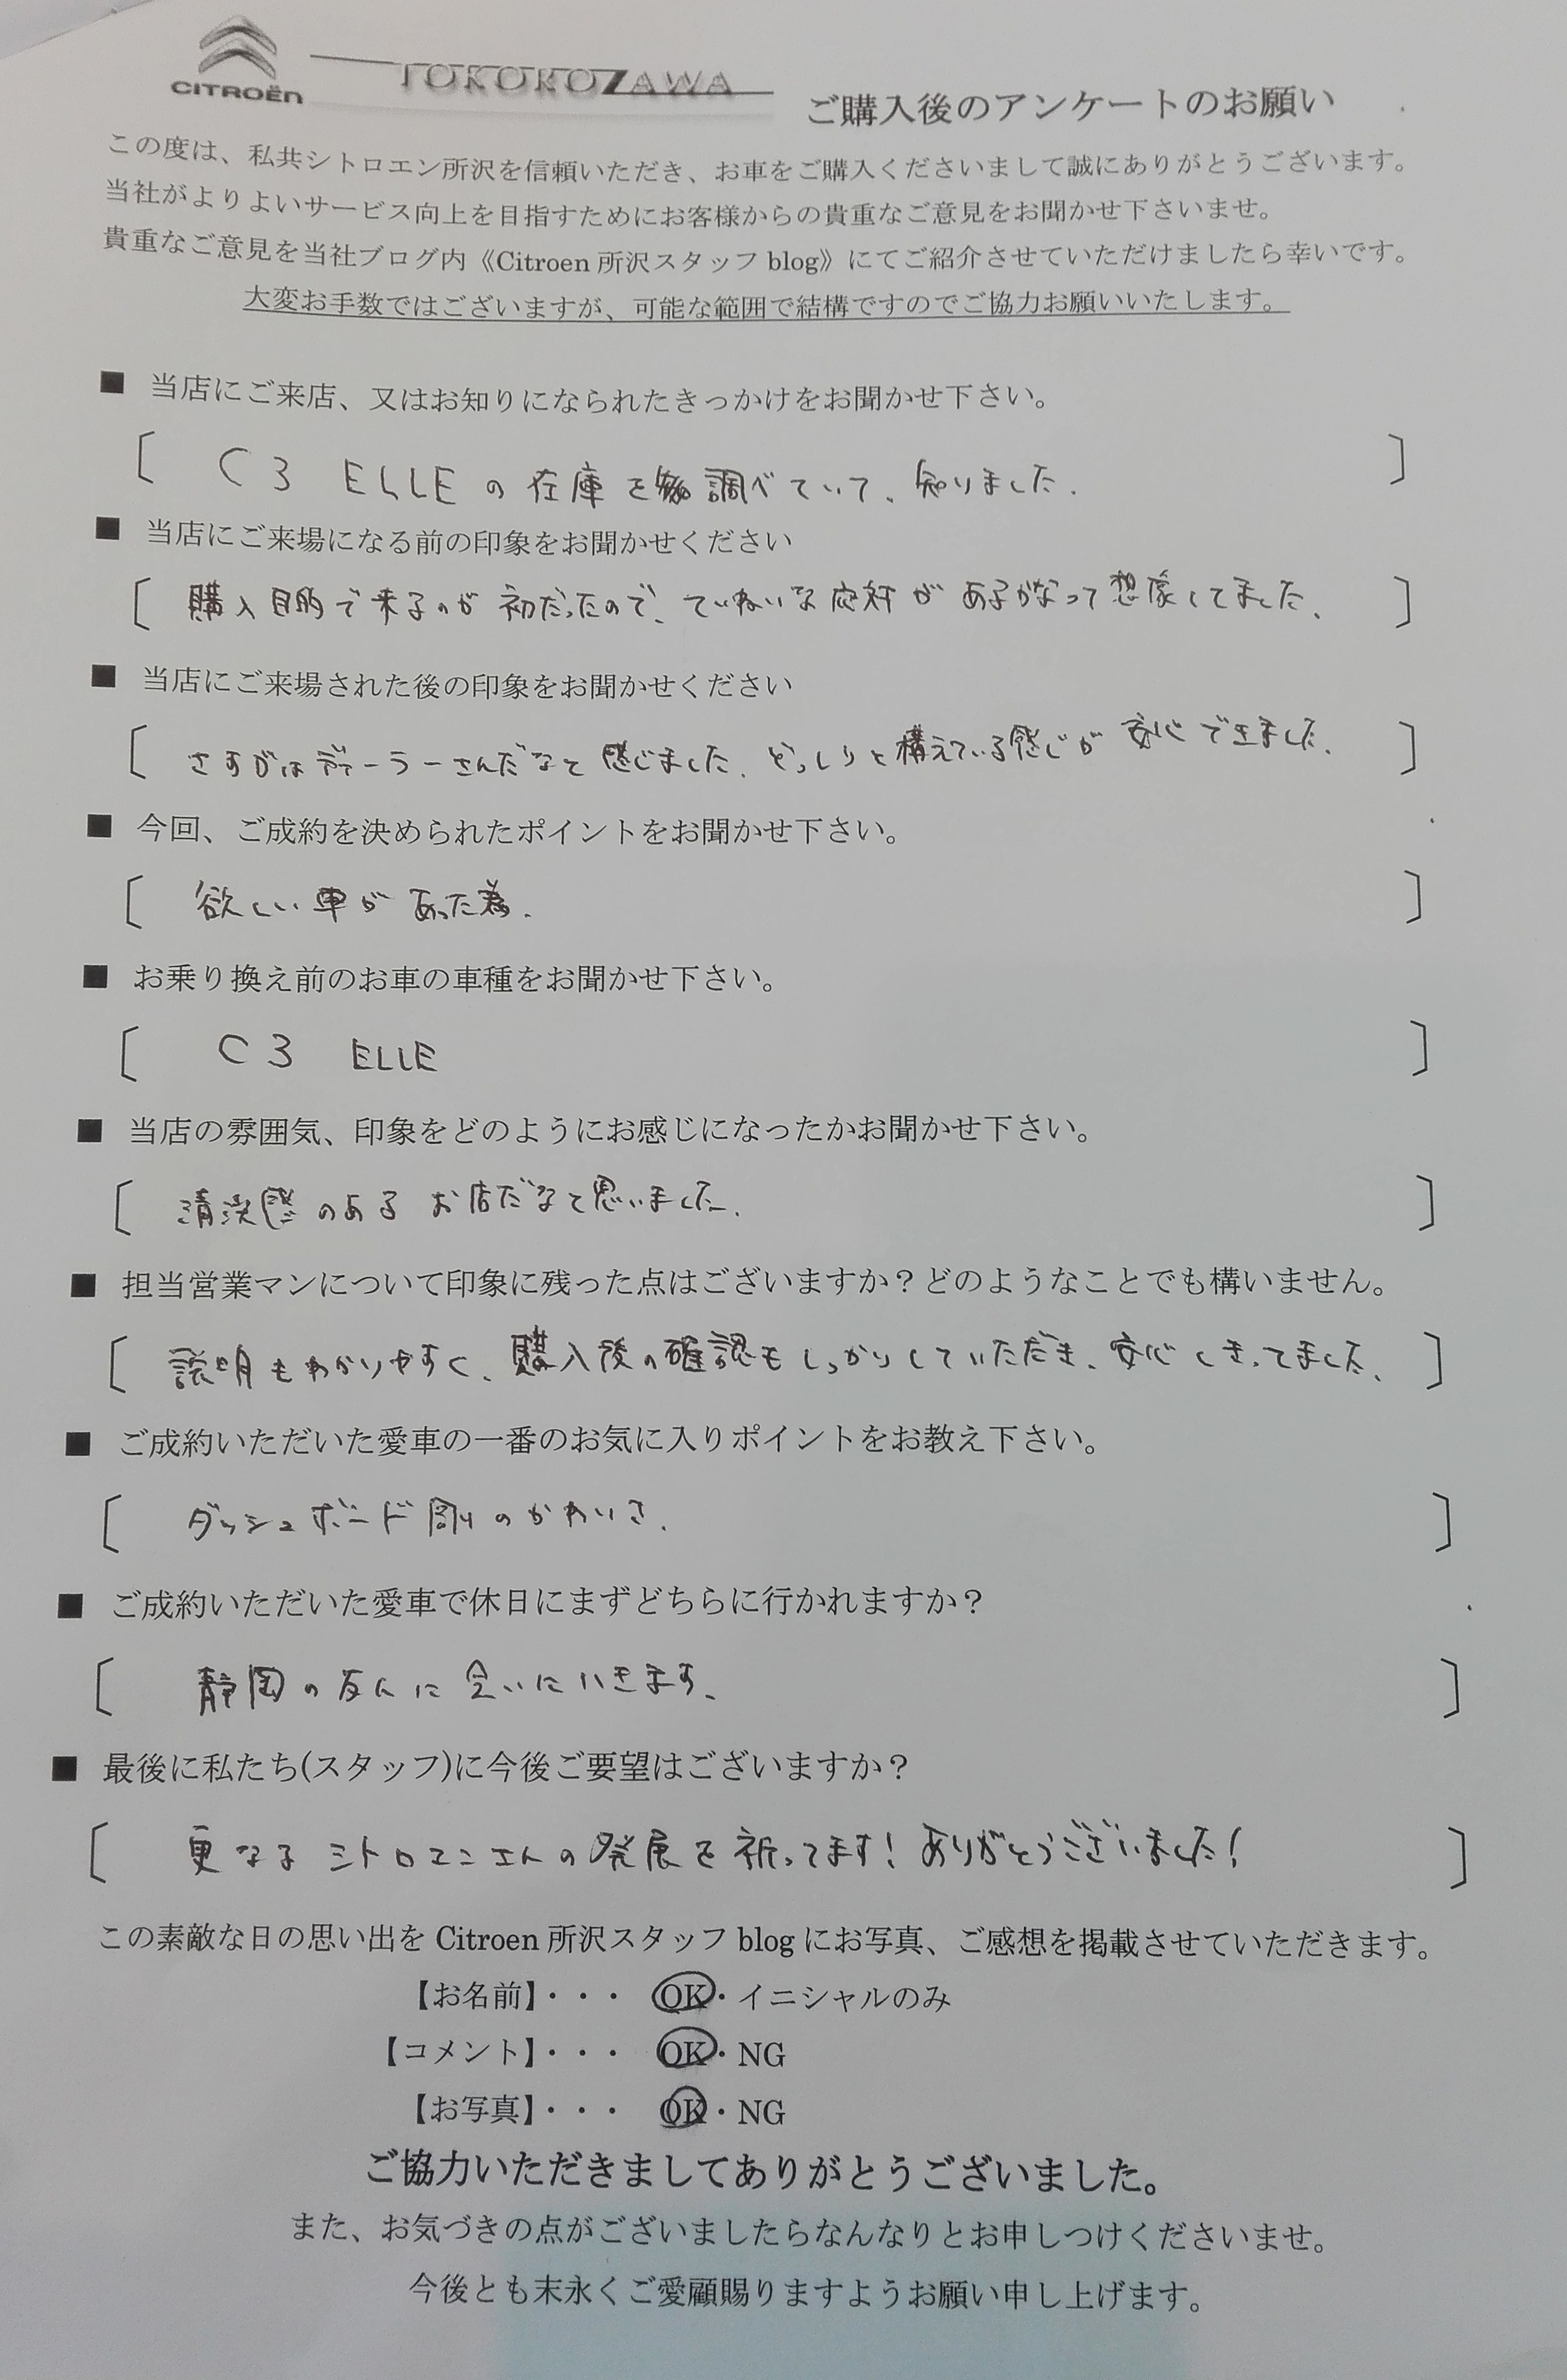 CITROËN TOKOROZAWA ご購入後のアンケートのお願い
この度は、私共シトロエン所沢を信頼いただき、お車をご購入くださいまして誠にありがとうございます。
当社がよりよいサービス向上を目指すためにお客様からの貴重なご意見をお聞かせ下さいませ。
貴重なご意見を当社ブログ内《Citroen 所沢スタッフ blog》にてご紹介させていただけましたら幸いです。
大変お手数ではございますが、可能な範囲で結構ですのでご協力お願いいたします。
■ 当店にご来店、又はお知りになられたきっかけをお聞かせ下さい。
〔 C3 ELLEの在庫を調べていて、知りました. 〕
■ 当店にご来場になる前の印象をお聞かせください
〔 購入目的で来るのが初だったので、ていねいな応対があるがなって想像してました、 〕
■ 当店にご来場された後の印象をお聞かせください
〔 さすがはディーラーさんだなと感じました. どっしりと構えている感じが安心できました. 〕
■ 今回、ご成約を決められたポイントをお聞かせ下さい。
〔 欲しい車があった為. 〕
■ お乗り換え前のお車の車種をお聞かせ下さい。
〔 C3 ELLE 〕
■ 当店の雰囲気、印象をどのようにお感じになったかお聞かせ下さい。
〔 清潔感のあるお店だなと思いました. 〕
■ 担当営業マンについて印象に残った点はございますか？どのようなことでも構いません。
〔 説明もわかりやすく、購入後の確認もしっかりしていただき、安心しきってました、 〕
■ ご成約いただいた愛車の一番のお気に入りポイントをお教え下さい。
〔 ダッシュボードのかわいさ. 〕
■ ご成約いただいた愛車で休日にまずどちらに行かれますか？
〔 静岡の友人に会いにいきます、 〕
■ 最後に私たち(スタッフ)に今後ご要望はございますか？
〔 更なるシトロエンさんの発展を祈ってます! ありがとうございました! 〕
この素敵な日の思い出を Citroen 所沢スタッフ blog にお写真、ご感想を掲載させていただきます。
【お名前】・・・ OK・イニシャルのみ
【コメント】・・・ OK・NG
【お写真】・・・ OK・NG
ご協力いただきましてありがとうございました。
また、お気づきの点がございましたらなんなりとお申しつけくださいませ。
今後とも末永くご愛顧賜りますようお願い申し上げます。